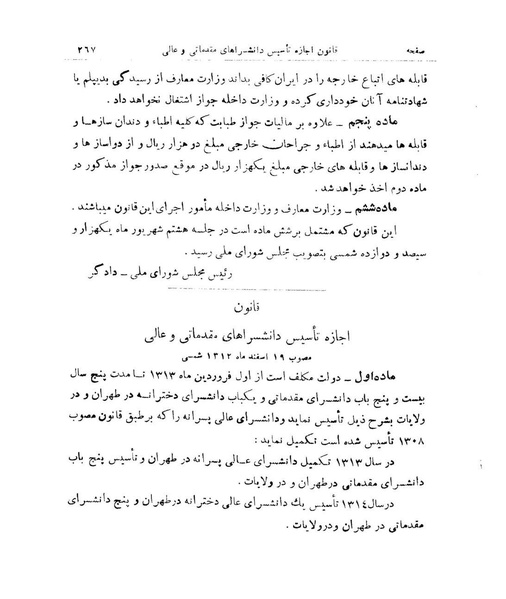 صفحه قانون اجازه تأسیس دانشسراهای مقدماتی و عالی ۲۶۷
قابله های اتباع خارجه را در ایران کافی بداند وزارت معارف از رسیدگی بدیپلم یا
شهادتنامه آنان خودداری کرده و وزارت داخله جواز اشتغال نخواهد داد .
ماده پنجم ـ علاوه بر مالیات جواز طبابت که کلیه اطباء و دندان سازها و
قابله ها میدهند از اطباء و جراحان خارجی مبلغ دو هزار ریال و از دواساز ها و
دندانساز ها و قابله های خارجی مبلغ یکهزار ریال در موقع صدور جواز مذکور در
ماده دوم اخذ خواهد شد .
ماده ششم ـ وزارت معارف و وزارت داخله مأمور اجرای این قانون میباشند .
این قانون که مشتمل برشش ماده است در جلسه هشتم شهریور ماه یکهزار و
سیصد و دوازده شمسی بتصویب مجلس شورای ملی رسید .
رئیس مجلس شورای ملی ـ دادگر
قانون
اجازه تأسیس دانشسراهای مقدماتی و عالی
مصوب ۱۹ اسفند ماه ۱۳۱۲ شمسی
ماده اول ـ دولت مکلف است از اول فروردین ماه ۱۳۱۳ تا مدت پنج سال
بیست و پنج باب دانشسرای مقدماتی و یکباب دانشسرای دخترانه در طهران و در
ولایات بشرح ذیل تأسیس نماید ودانشسرای عالی پسرانه را که برطبق قانون مصوب
۱۳۰۸ تأسیس شده است تکمیل نماید :
در سال ۱۳۱۳ تکمیل دانشسرای عالی پسرانه در طهران و تأسیس پنج باب
دانشسرای مقدماتی درطهران و در ولایات .
درسال ۱۳۱۴ تأسیس یك دانشسرای عالی دخترانه درطهران و پنج دانشسرای
مقدماتی در طهران ودرولایات .